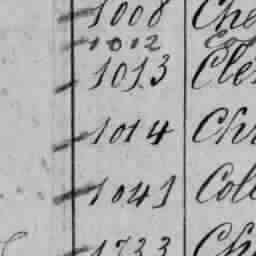 1008 Che
1012
1013 Cle
1014 Chr
1041 Col
1733 Ch